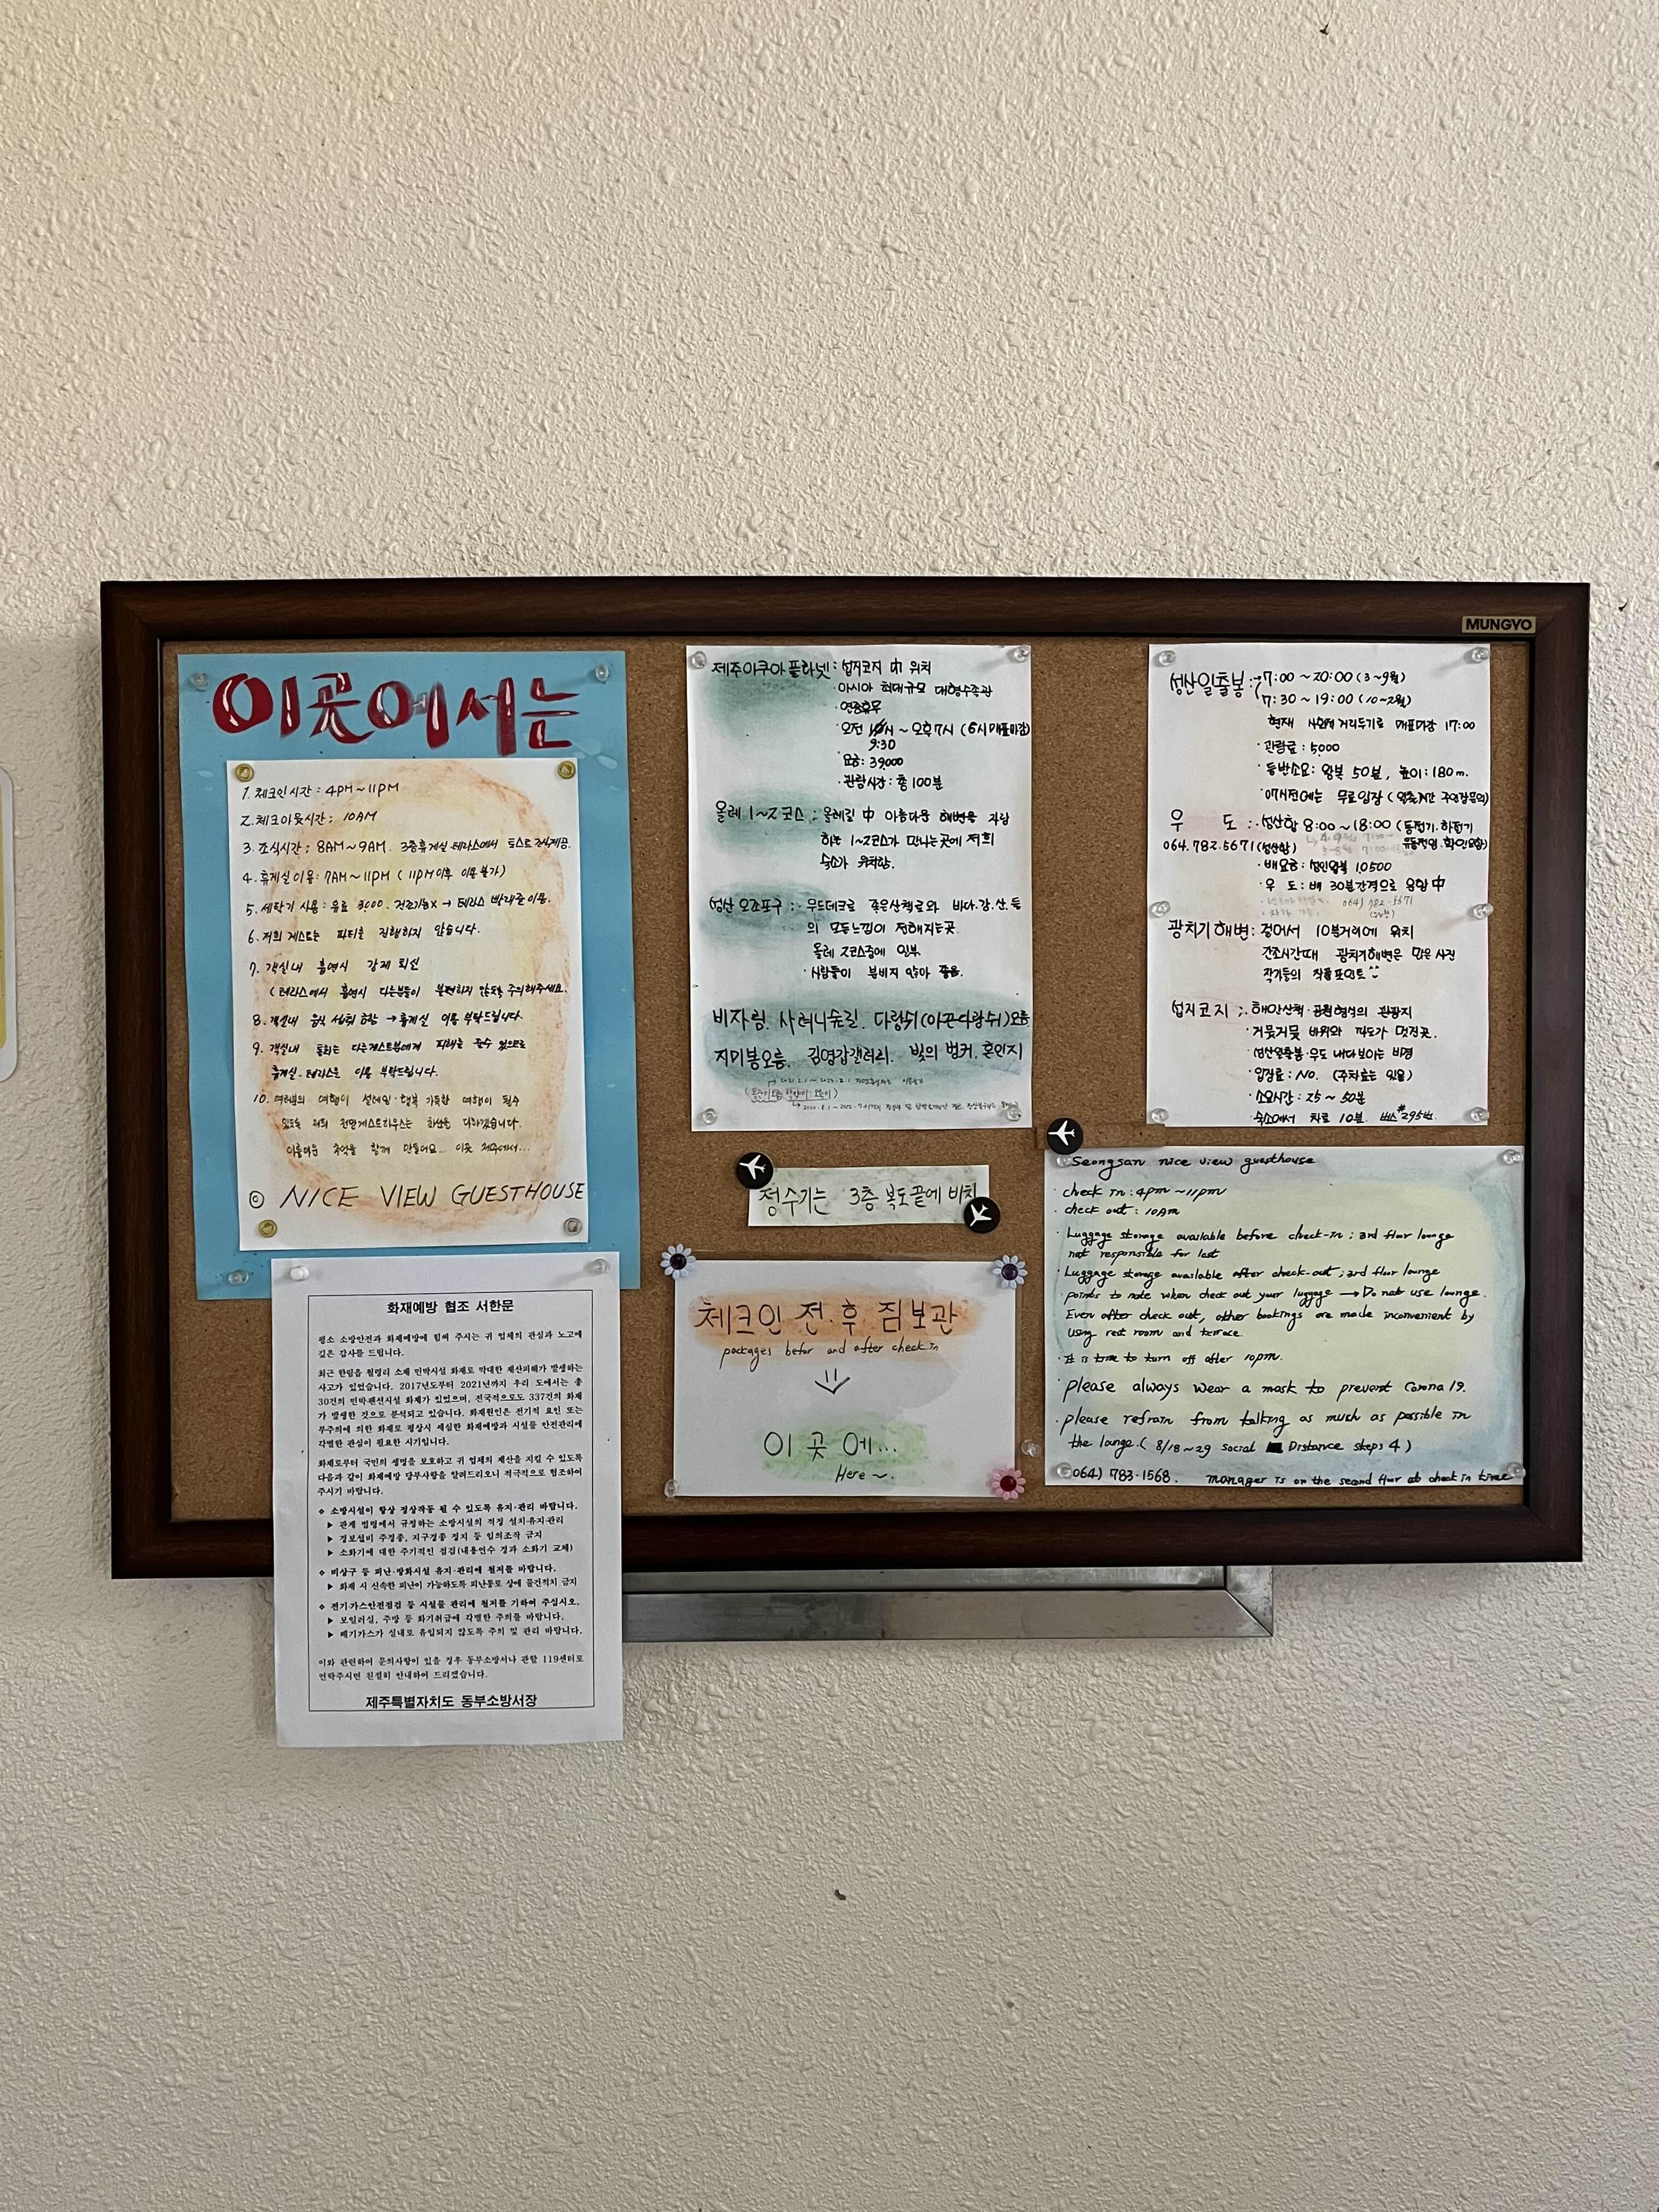 MUNGYO
이곳에서는
1. 체크인시간 : 4PM ~ 11PM
2. 체크아웃시간 ; 10AM
3. 조식시간 ; 8AM ~ 9AM. 3층휴게실 테라스에서 토스트 간식제공.
4. 휴게실 이용 : 7AM ~ 11PM ( 11PM 이후 이용 불가)
5. 세탁기 사용 : 유료 3000. 건조기능X → 테라스 빨래줄 이용.
6. 저희 게스트는 파티를 진행하지 않습니다.
7. 객실내 흡연시 강제 퇴실
( 테라스에서 흡연시 다른분들이 불편하지 않도록 주의해주세요.
8. 객실내 음식 섭취 → 휴게실 이용 부탁드립니다.
9. 객실내 통화는 다른게스트분에게 피해를 줄수 있으므로
휴게실. 테라스 이용 부탁드립니다.
10. 여러분의 여행이 설레임·행복 가득한 여행이 될수
있도록 저희 전망게스트하우스는 최선을 다하겠습니다.
아름다운 추억을 함께 만들어요... 이곳 제주에서...
© NICE VIEW GUESTHOUSE
화재예방 협조 서한문
평소 소방안전과 화재예방에 힘써 주시는 귀 업체의 관심과 노고에
깊은 감사를 드립니다.
최근 한림읍 월령리 소재 민박시설 화재로 막대한 재산피해가 발생하는
사고가 있었습니다. 2017년도부터 2021년까지 우리 도에서는 총
30건의 민박·펜션시설 화재가 있었으며, 전국적으로도 337건의 화재
가 발생한 것으로 분석되고 있습니다. 화재원인은 전기적 요인 또는
부주의에 의한 화재로 평상시 세심한 화재예방과 시설물 안전관리에
각별한 관심이 필요한 시기입니다.
화재로부터 국민의 생명을 보호하고 귀 업체의 재산을 지킬 수 있도록
다음과 같이 화재예방 당부사항을 알려드리오니 적극적으로 협조하여
주시기 바랍니다.
❖ 소방시설이 항상 정상작동 될 수 있도록 유지·관리 바랍니다.
▶ 관계 법령에서 규정하는 소방시설의 적정 설치·유지·관리
▶ 경보설비 주경종, 지구경종 정지 등 임의조작 금지
▶ 소화기에 대한 주기적인 점검(내용연수 경과 소화기 교체)
❖ 비상구 등 피난·방화시설 유지·관리에 철저를 바랍니다.
▶ 화재 시 신속한 피난이 가능하도록 피난통로 상에 물건적치 금지
❖ 전기·가스안전점검 등 시설물 관리에 철저를 기하여 주십시오.
▶ 보일러실, 주방 등 화기취급에 각별한 주의를 바랍니다.
▶ 배기가스가 실내로 유입되지 않도록 주의 및 관리 바랍니다.
이와 관련하여 문의사항이 있을 경우 동부소방서나 관할 119센터로
연락주시면 친절히 안내하여 드리겠습니다.
제주특별자치도 동부소방서장
제주아쿠아플라넷 : 섭지코지 中 위치
· 아시아 최대규모 대형수족관
· 연중휴무
· 오전 ~ 오후7시 (6시 매표마감)
9:30
· 요금 : 39,000
· 관람시간 : 총 100분
올레 1~2코스 ; 올레길 中 아름다운 해변을 자랑
하는 1~2코스가 만나는곳에 저희
숙소가 위치함.
성산 오조포구 : · 우드데크로 좋은산책로와 바다.강.산.들
의 모든느낌이 전해지는곳.
올레 2코스중에 일부.
· 사람들이 붐비지 않아 좋음.
비자림. 사려니숲길. 다랑쉬(아끈다랑쉬)오름
지미봉오름. 김영갑갤러리. 빛의 벙커. 혼인지
정수기는 3층 복도끝에 비치
체크인 전·후 짐보관
packages befor and after check in
이 곳 에...
Here ~.
성산일출봉 : 7:00 ~ 20:00 (3~9월)
7:30 ~ 19:00 (10~2월)
현재 사회적 거리두기로 매표마감 17:00
· 관람료 : 5,000
· 등반소요 : 왕복 50분, 높이 : 180m.
· 07시전에는 무료입장 (일출시간
우 도 : · 성산항 8:00 ~ 18:00 (동절기. 하절기
064.782.5671 (성산항) 유동적임. 확인요함)
· 배요금 : 성인왕복 10,500
· 우 도 : 배 30분간격으로 운항 中
064) 782-5671
광치기해변 : 걸어서 10분거리에 위치
간조시간때 광치기해변은 많은 사진
작가들의 작품 포인트
섭지코지 ; · 해안산책·공원형식의 관광지
· 거뭇거뭇 바위와 파도가 멋진곳.
· 성산일출봉·우도 내다보이는 비경
· 입장료 : NO. (주차료는 있음)
· 소요시간 : 25 ~ 50분
숙소에서 차로 10분. 버스 #295번.
Seongsan nice view guesthouse
· check in : 4pm ~ 11pm
· check out : 10Am
· Luggage storage available before check-in ; 3rd flour lounge
not responsible for lost
· Luggage storage available after check-out ; 3rd flour lounge
points to note when check out your luggage → Do not use lounge.
Even after check out, other bookings are made inconvenient by
using rest room and terrace
· It is time to turn off after 10pm.
· please always wear a mask to prevent Corona 19.
· please refrain from talking as mush as possible in
the lounge. ( 8/18 ~ 29 social Distance steps 4 )
064) 783-1568. manager is on the second flour at check in time